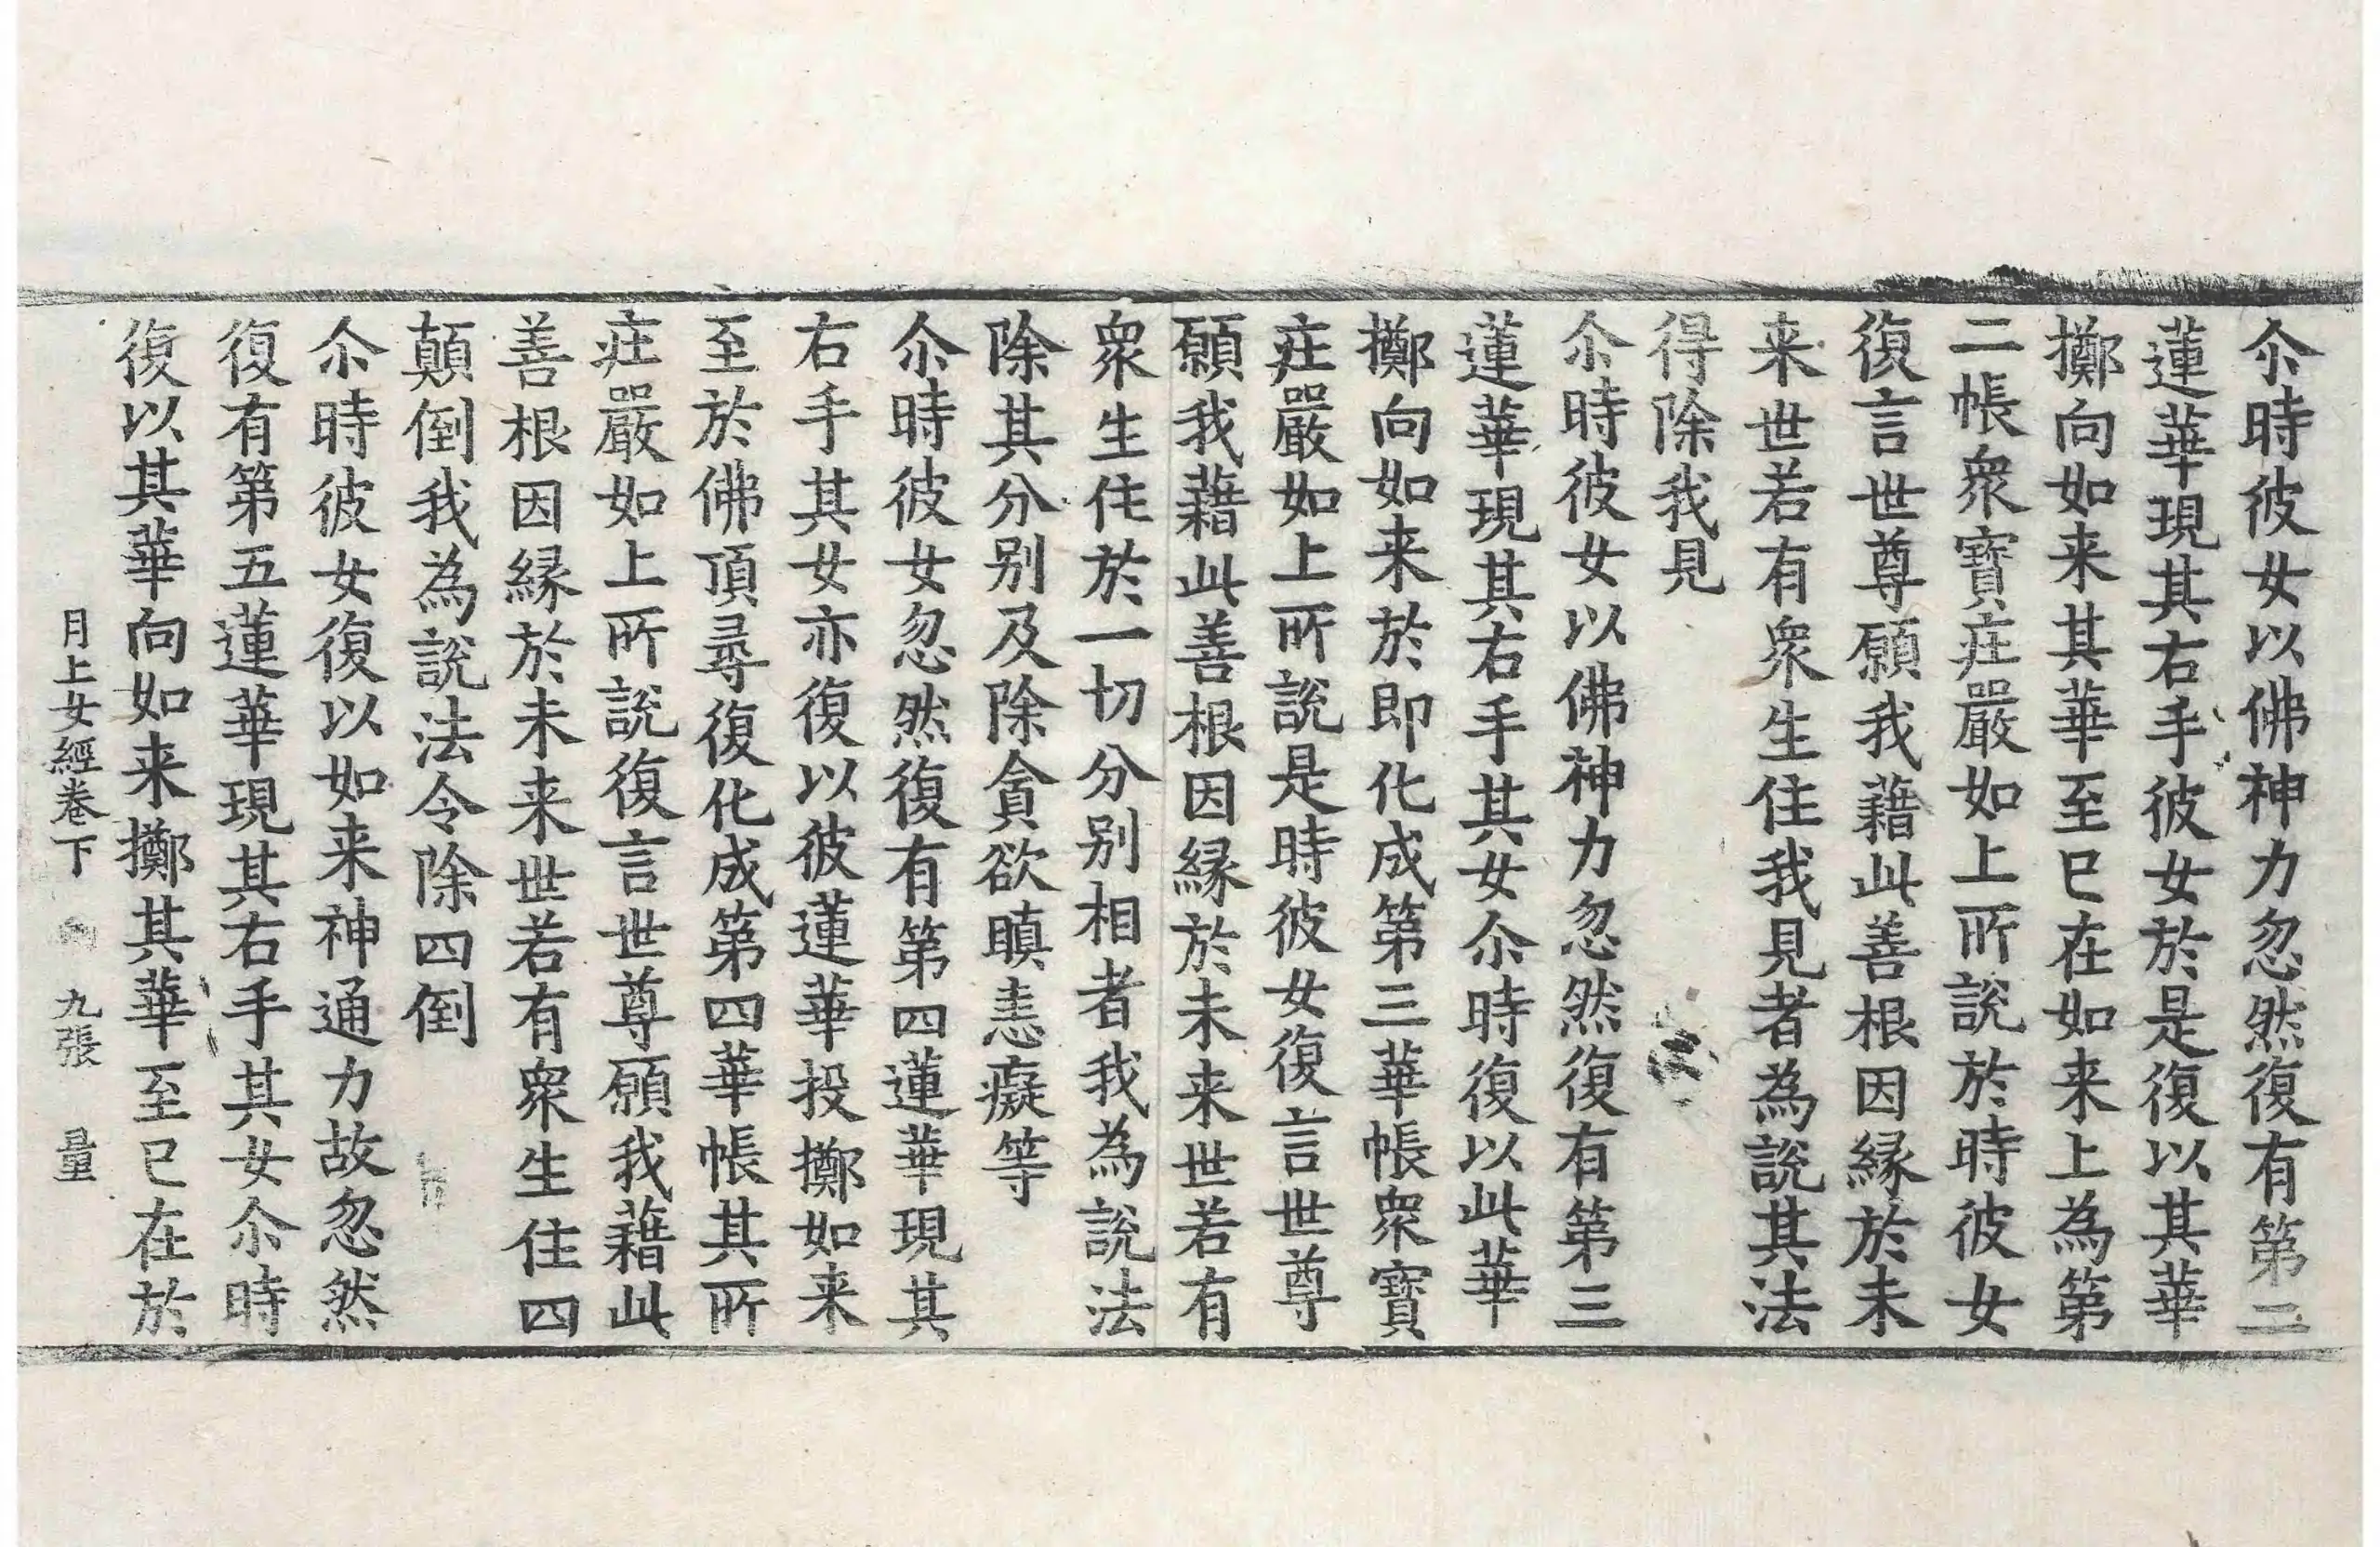 尒時彼女以佛神力忽然復有第二
蓮華現其右手彼女於是復以其華
擲向如来其華至已在如来上為第
二帳衆寳莊嚴如上所說於時彼女
復言世尊願我藉此善根因縁於未
来世若有衆生住我見者為說其法
得除我見
尒時彼女以佛神力忽然復有第三
蓮華現其右手其女尒時復以此華
擲向如来於即化成第三華帳衆寳
莊嚴如上所說是時彼女復言世尊
願我藉此善根因縁於未来世若有
衆生住於一切分别相者我為說法
除其分别及除貪欲瞋恚癡等
尒時彼女忽然復有第四蓮華現其
右手其女亦復以彼蓮華投擲如来
至於佛頂尋復化成第四華帳其所
莊嚴如上所說復言世尊願我藉此
善根因縁於未来世若有衆生住四
顛倒我為說法令除四倒
尒時彼女復以如来神通力故忽然
復有第五蓮華現其右手其女尒時
復以其華向如来擲其華至已在於
月上女經卷下 九張 量